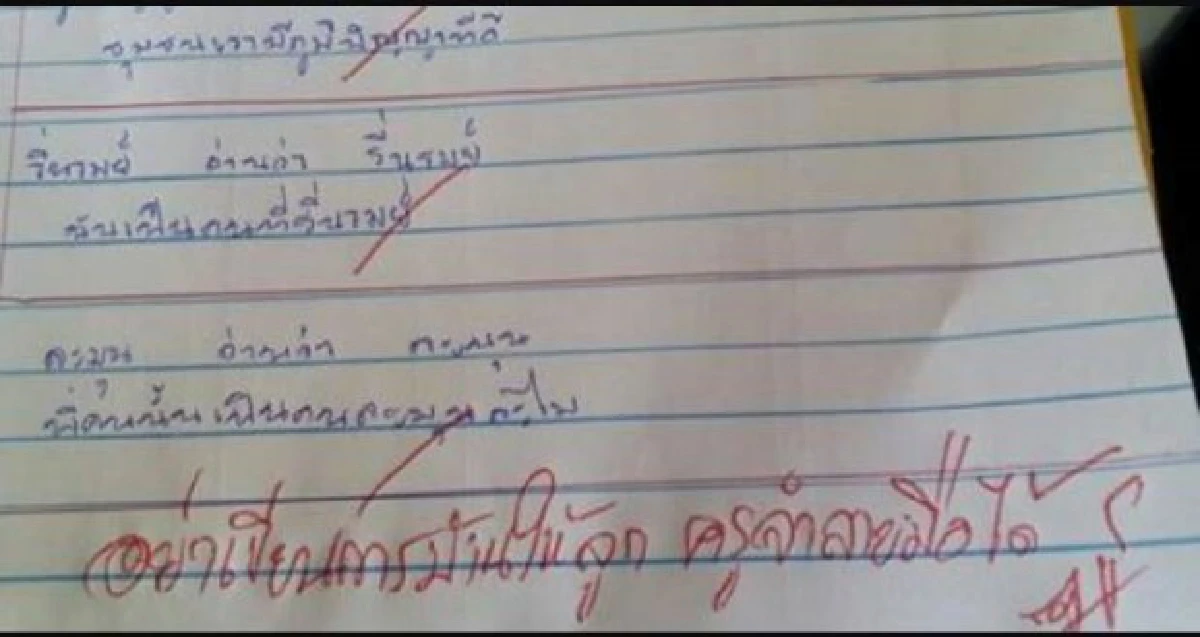 ชุมชนเรามีภูมิปัญญาที่ดี
รื่นรมย์ อ่านว่า รื่นรมย์
ฉันเป็นคนที่รื่นรมย์
ละมุน อ่านว่า ละมุน
พี่คนนั้นเป็นคนละมุนละไม
อย่าเขียนการบ้านให้ลูก ครูจำลายมือได้